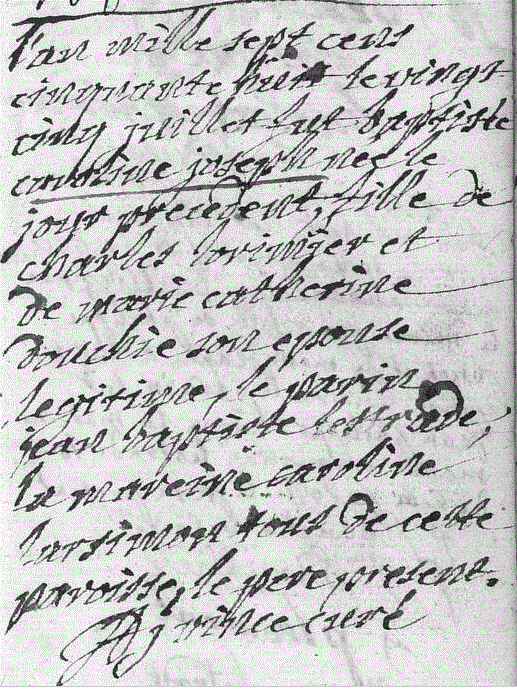 l'an mille sept cens
cinquante huit le vingt
cinq juillet fut baptisée
caroline joseph née le
jour precedent, fille de
charles lorimier et
de marie catherine
douchie son epouse
legitime, le parin
jean baptiste lestrade,
la mareine caroline
larsimon tous de cette
paroisse, le pere present.
curé